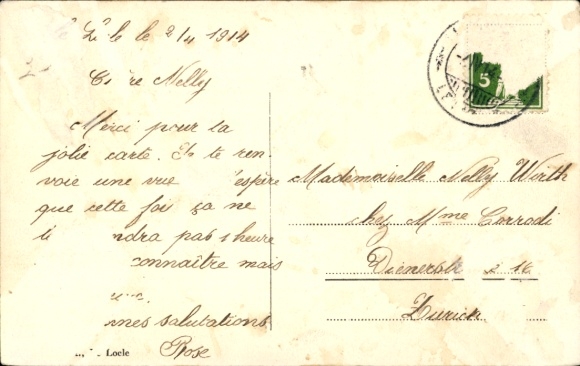 le 2/4 1914
Nelly
Merci pour ta
jolie carte. Je te ren-
voie une vue espère
que cette fois ça ne
ndra pas 1 heure
connaître mais
mes salutations
Rose
Locle
5
Mademoiselle Nelly Wirth
chez Mme Corrodi
Dienerstr
Zurich